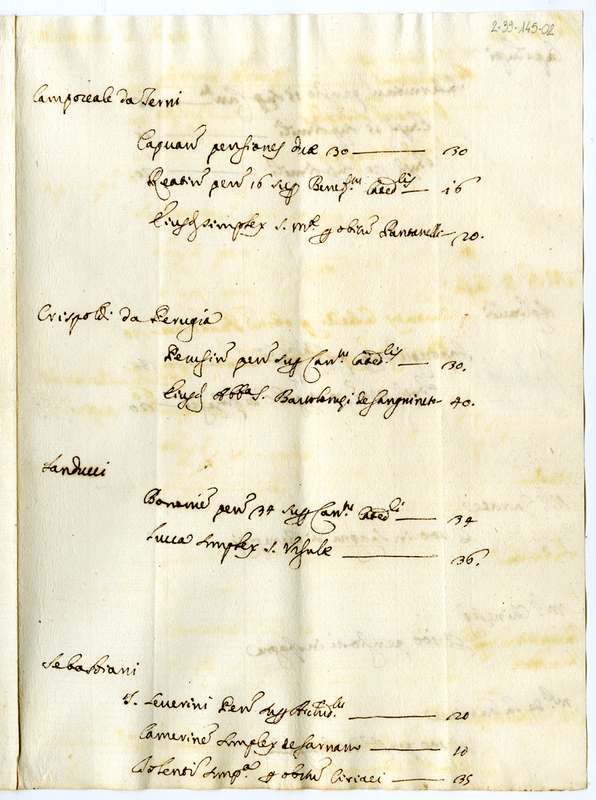 2-39-145-02
Camporeale da Terni
Capuan. pensiones duæ 30 — 30
Reatin. pen. 16 sup. Benef.tu Cated.lis — 16
Eiusd. simplex S. M.æ p obitu Pantanelli — 20.
Crispoldi da Perugia
Perusin. pen. sup Can.tu Cated.lis — 30.
Eiusd. Abba S. Bartolomei de Sanguineto — 40.
Landucci
Bononie. pen. 34 sup Can.tu Cated.li — 34
Lucca simplex S. Ursulæ — 36.
Sebastiani
S. Severini Pen. sup Archid.tu — 20
Camerine. simplex de Sarnano — 18
Tolentin. simp. p obitu Ciriaci — 35